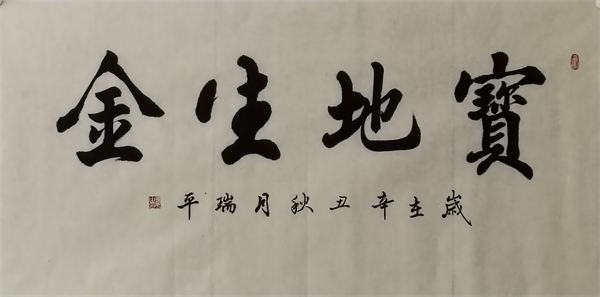 寶地生金
歲在辛丑秋月瑞平